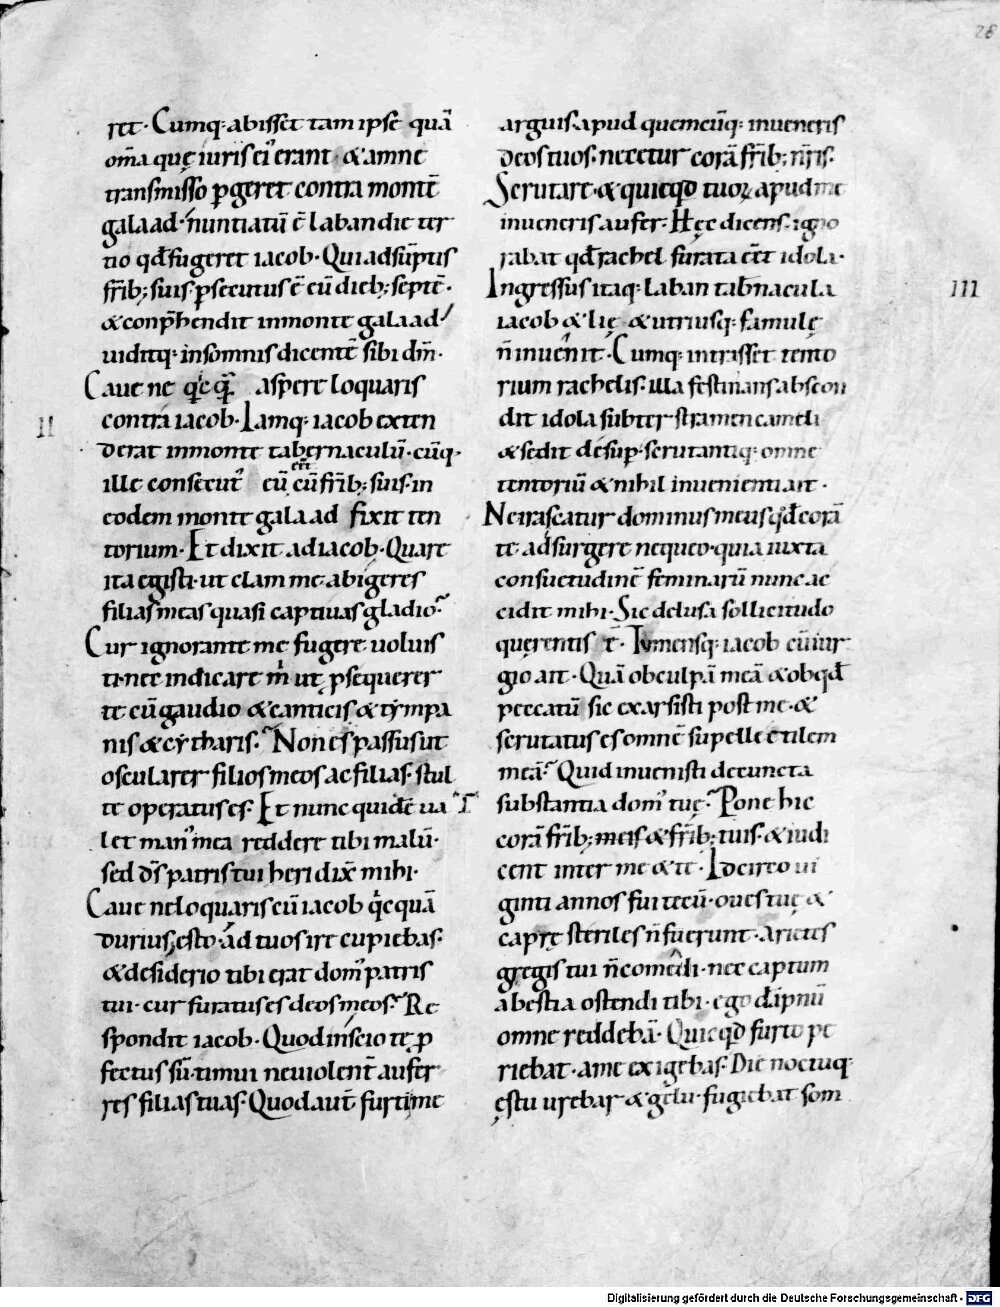 28
ret· Cumq; abisset tam ipse quā
om̄a quę iuris ei' erant· & amne
transmisso ꝑgeret contra montē
galaad· nuntiatū ē laban die ter
tio qd̄ fugeret iacob· Qui adsūptis
fr̄ib; suis ꝑsecutus ē eū dieb; septē·
& conp̄hendit in monte galaad·
uiditq; in somnis dicentē sibi dm̄·
Caue ne aspere loquaris
contra iacob· Iamq; iacob exten
II
derat in monte tabernaculū· cūq;
ille consecut' eū cū fr̄ib; suis· in
eēt
eodem monte galaad fixit ten
torium· Et dixit ad iacob· Quare
ita egisti· ut clam me abigeres
filias meas quasi captiuas gladio?
Cur ignorante me fugere uoluis
ti· nec indicare m̄ ut ꝓsequerer
te cū gaudio & canticis & tympa
nis & cytharis? Non es passus ut
oscularer filios meos ac filias· stul
te operatus es· Et nunc quidē ua
let man' mea reddere tibi malū·
sed ds̄ patris tui heri dix̄ mihi·
Caue ne loquaris cū iacob qicquā
durius· esto· ad tuos ire cupiebas·
& desiderio tibi erat dom' patris
tui· cur furatus es deos meos? Re
spondit iacob· Quod inscio te ꝓ
fectus sū· timui ne uiolent̄ aufer
res filias tuas· Quod aut̄ furti me
arguis· apud quemcūq; inueneris
deos tuos· necetur corā fr̄ib; nr̄is·
Scrutare· & quicqd tuoꝝ apud me
inueneris aufer· Hęc dicens· igno
rabat qd̄ rachel furata eēt idola·
Ingressus itaq; laban tab̄nacula
III
iacob & lię & utriusq; famulę
n̄ inuenit· Cumq; intrasset tento
rium rachelis· illa festinans abscon
dit idola subter stramen cameli
& sedit desuꝑ· scrutantiq; omne
tentoriū & nihil inuenienti ait·
Ne irascatur dominus meus qd̄ corā
te adsurgere nequeo· quia iuxta
consuetudinē feminarū nunc ac
cidit mihi· Sic delusa sollicitudo
querentis ē· Tumensq; iacob cū iur
gio ait· Quā ob culpā meā & ob qd̄
peccatū sic exarsisti post me· &
scrutatus es omnē supellectilem
meā? Quid inuenisti de cuncta
substantia dom' tuę? Pone hic
corā fr̄ib; meis & fr̄ib; tuis· & iudi
cent inter me & te· Idcirco ui
ginti annos fui tecū· oues tuę &
caprę steriles n̄ fuerunt· arietes
gregis tui n̄ comedi· nec captum
a bestia ostendi tibi· ego dāpnū
omne reddebā· Quicqd furto pe
riebat· a me exigebas· Die noctuq;
ęstu urebar & gelu· fugiebat som
Digitalisierung gefördert durch die Deutsche Forschungsgemeinschaft - DFG